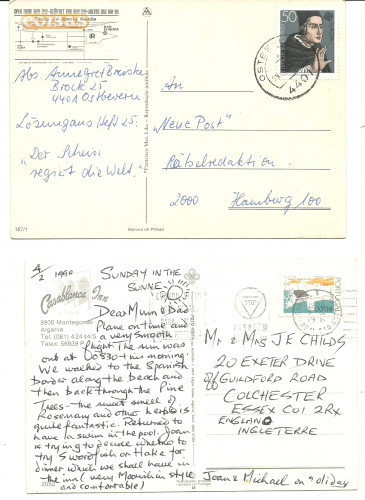 50
4401
Abs. Annegret Brenske
Brock 25
4401 Ostbevern
Lösung aus Heft 25:
"Der Schein
regiert die Welt."
An
"Neue Post"
Rätselredaktion
2000 Hamburg 100
167/1
4/2 1990
SUNDAY IN THE
SUNNE.
Casablanca Inn
8900 Montegordo
Algarve
Dear Mum & Dad
Plane on time and
a very smooth
flight. The sun was
out at 0830 this morning.
We walked to the Spanish
border along the beach and
then back through the Pine
Trees - the sweet smell of
Rosemary and other herbs is
quite fantastic. Returned to
have a swim in the pool. Joan
is trying to decide whether to
try Swordfish or Hake for
dinner which we shall have
in the inn (very Moorish in style
and comfortable)
PORTUGAL
Mr & Mrs JE CHILDS
20 EXETER DRIVE
off GUILDFORD ROAD
COLCHESTER
ESSEX CO1 2RX
ENGLAND
INGLETERRE
Joan & Michael on 'oliday